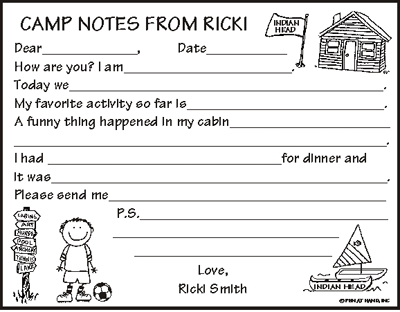 CAMP NOTES FROM RICKI
INDIAN HEAD
Dear____________, Date____________
How are you? I am______________________.
Today we______________________________.
My favorite activity so far is______________________.
A funny thing happened in my cabin______________________
______________________________.
I had ______________________for dinner and
It was______________________________.
Please send me______________________.
P.S.______________________
______________________
______________________
Love,
Ricki Smith
CABINS
ART
POOL
ARCHERY
TENNIS
LAKE
INDIAN HEAD